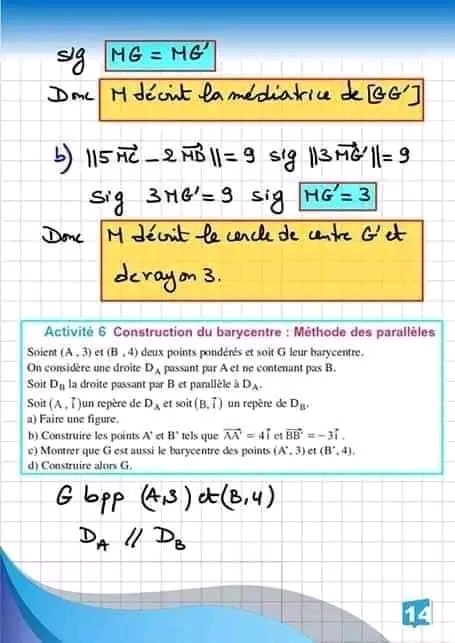 sig MG = MG'
Donc M décrit la médiatrice de [GG']
b) ||5MC⃗ - 2MD⃗|| = 9 sig ||3MG'⃗|| = 9
sig 3MG' = 9 sig MG' = 3
Donc M décrit le cercle de centre G' et
de rayon 3.
Activité 6 Construction du barycentre : Méthode des parallèles
Soient (A , 3) et (B , 4) deux points pondérés et soit G leur barycentre.
On considère une droite D_A passant par A et ne contenant pas B.
Soit D_B la droite passant par B et parallèle à D_A.
Soit (A , i⃗) un repère de D_A et soit (B, i⃗) un repère de D_B.
a) Faire une figure.
b) Construire les points A' et B' tels que AA'⃗ = 4i⃗ et BB'⃗ = -3i⃗ .
c) Montrer que G est aussi le barycentre des points (A', 3) et (B', 4).
d) Construire alors G.
G bpp (A,3) et (B,4)
D_A // D_B
14